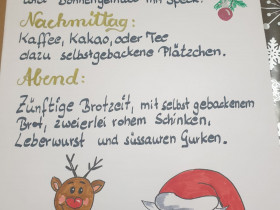 und Bohnengemüse mit Speck.
Nachmittag:
Kaffee, Kakao, oder Tee
dazu selbstgebackene Plätzchen.
Abend:
Zünftige Brotzeit, mit selbst gebackenem
Brot, zweierlei rohem Schinken,
Leberwurst und süssauren Gurken.